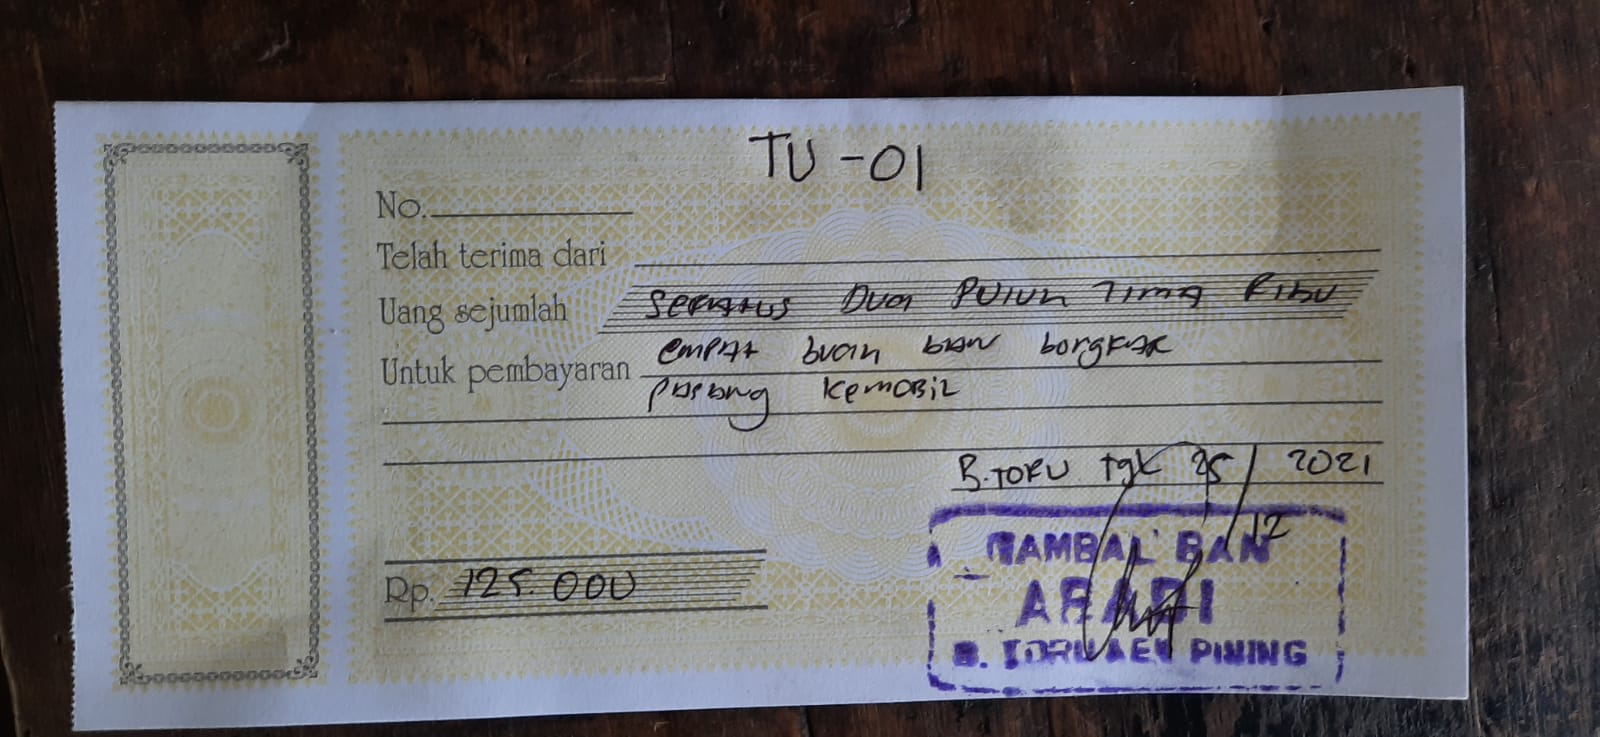 TU - 01
No.
Telah terima dari
Uang sejumlah Seratus Dua Puluh Lima Ribu
Untuk pembayaran empat buah ban bongkar
pasang kemobil
B.TORU tgl 25/12 2021
Rp. 125.000
TAMBAL BAN
B. TORU PINING